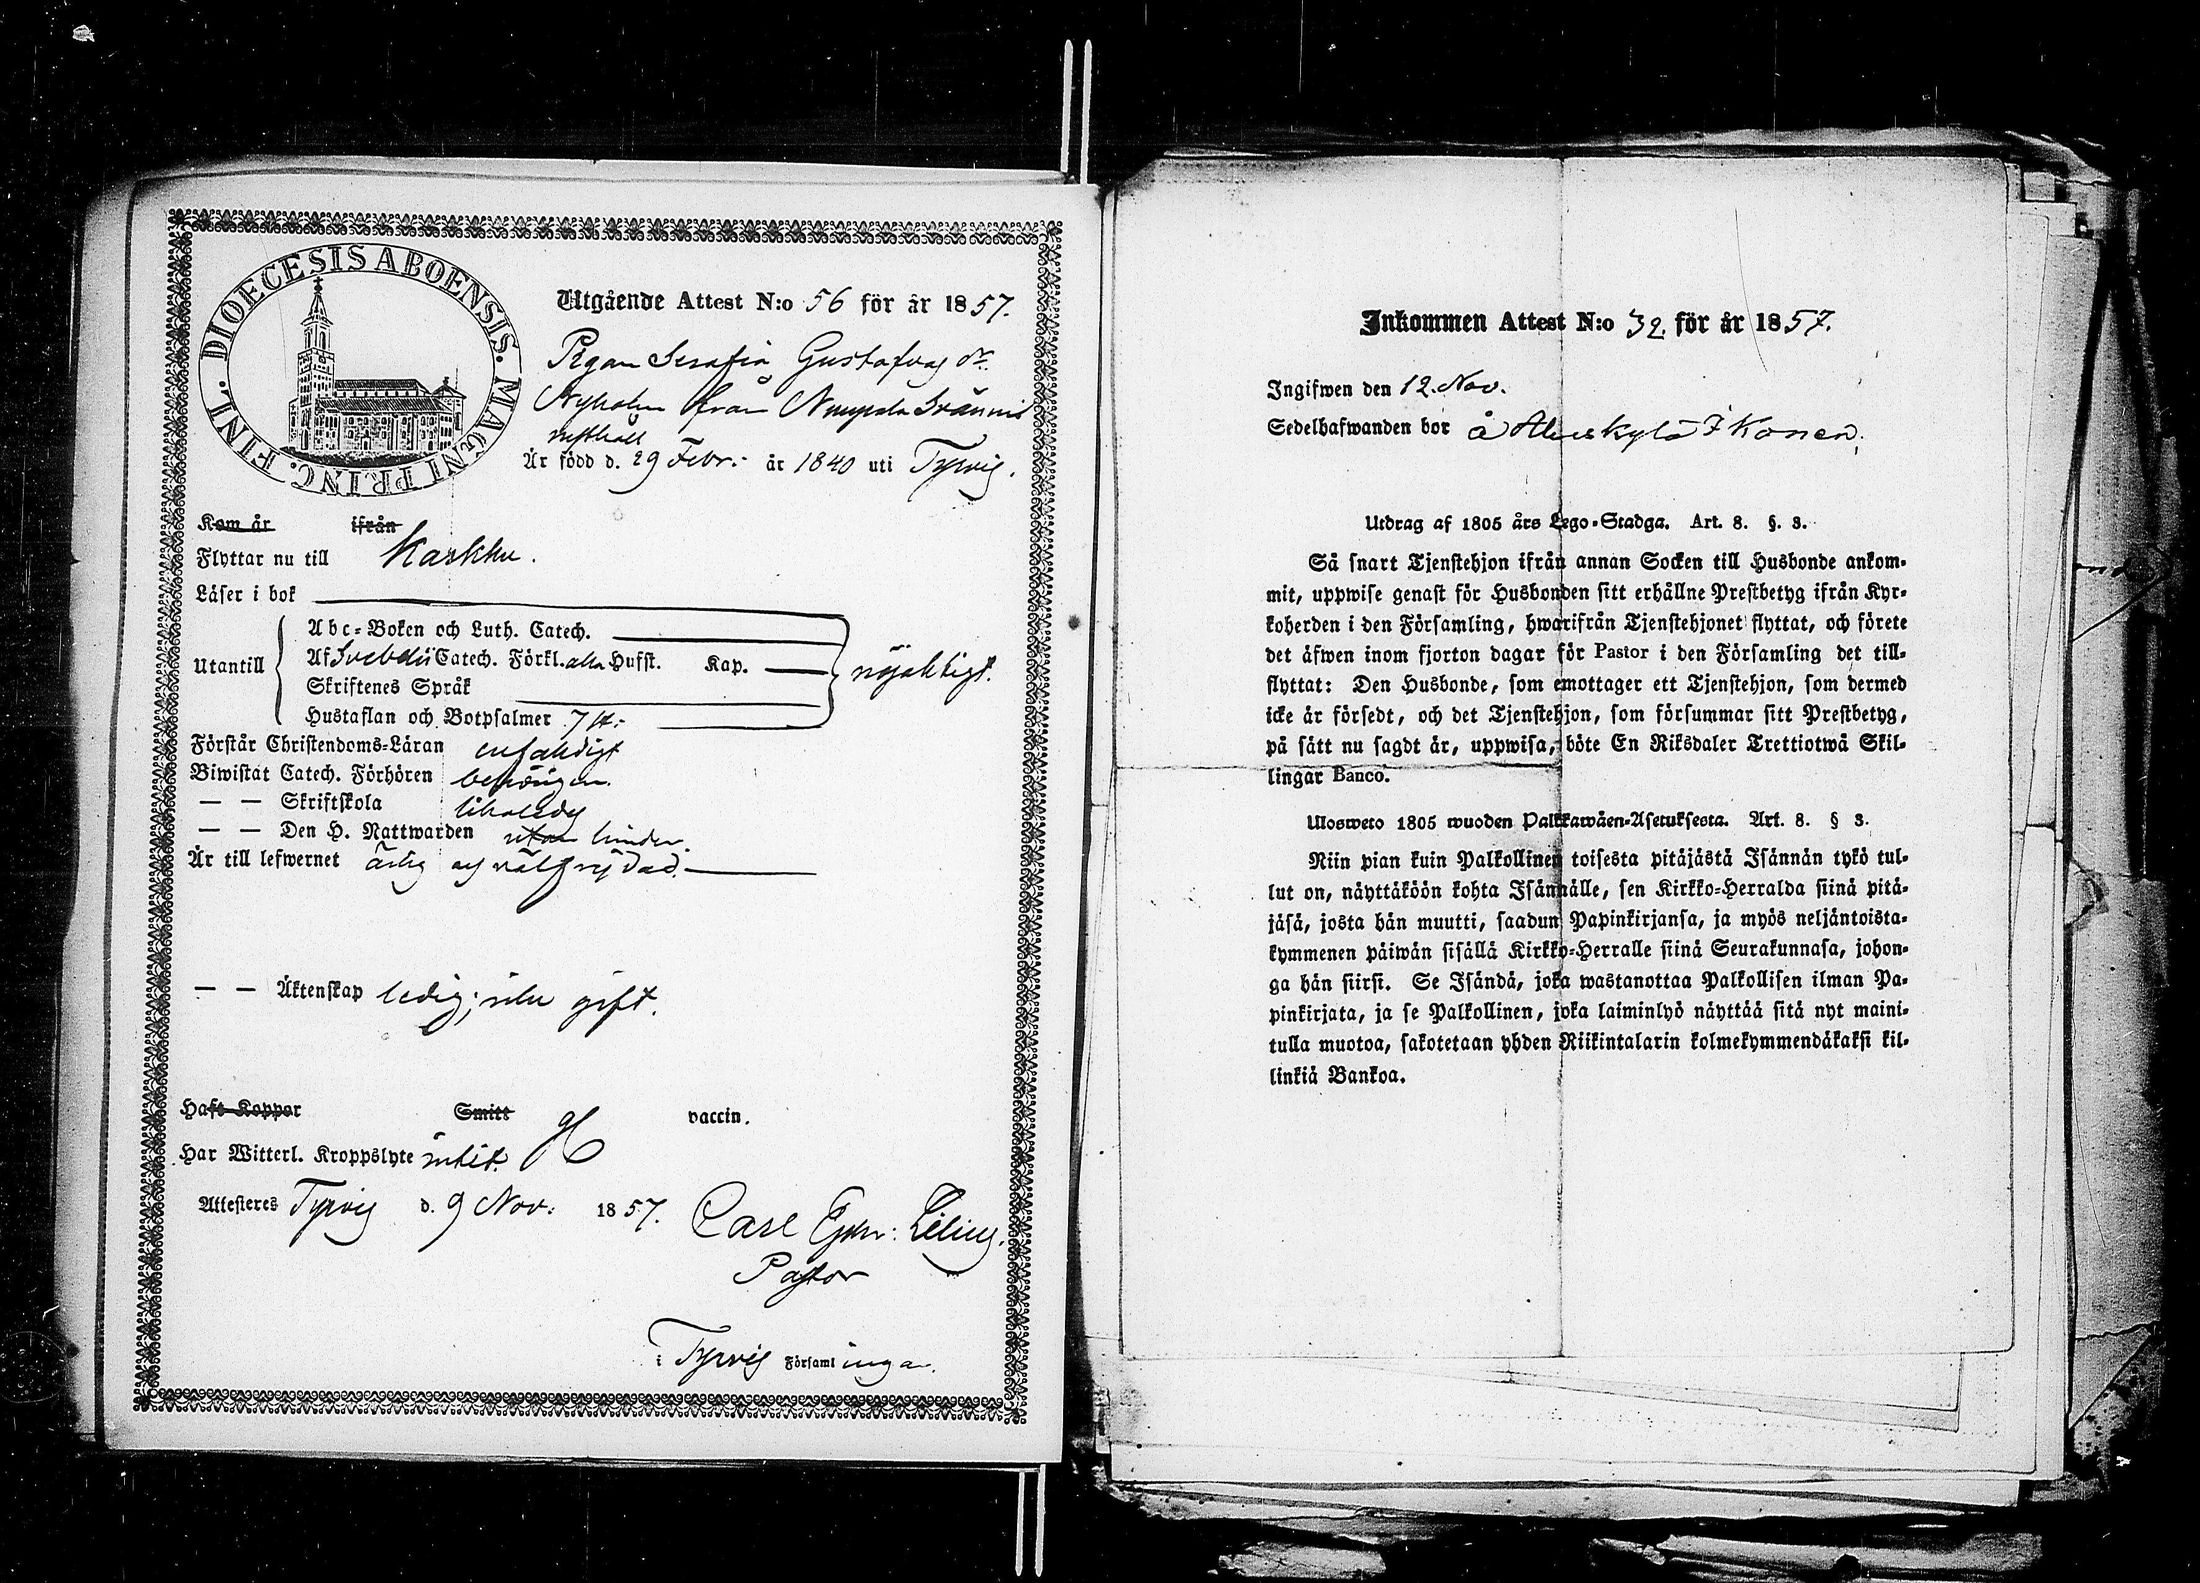 DIOECESIS ABOENSIS. MAGNI PRINC. FINL.
Utgående Attest N:o 56 för år 1857.
Pigan Serafia Gustafva dr.
Nyholm från
Är född d. 29 Febr. år 1840 uti Tyrvis.
Kom år ifrån
Flyttar nu till Karkku.
Läser i bok
Abc-Boken och Luth. Catech.
Utantill Af Svebelii Catech. Förkl. alla Hufst. Kap. nöjaktigt.
Skriftenes Språk
Hustaflan och Botpsalmer 7 st.
Förstår Christendoms-Läran enfaldigt
Biwistat Catech. Förhören behörigen.
— — Skriftskola likaledes
— — Den H. Nattwarden utan hinder.
Är till lefwernet ärlig och välfrejdad.
— — Äktenskap ledig; icke gift.
Haft Koppor Smitt vaccin.
Har Witterl. Kroppslyte intet.
Attesteres Tyrvis d. 9 Nov. 1857. Carl Lilius.
Pastor
i Tyrvis Församlingar.
Inkommen Attest N:o 32. för år 1857.
Ingifwen den 12. Nov.
Sedelhafwanden bor å Aluskylä Ikonen.
Utdrag af 1805 års Lego-Stadga. Art. 8. §. 3.
Så snart Tjenstehjon ifrån annan Socken till Husbonde ankom-
mit, uppwise genast för Husbonden sitt erhållne Prestbetyg ifrån Kyr-
koherden i den Församling, hwarifrån Tjenstehjonet flyttat, och förete
det äfwen inom fjorton dagar för Pastor i den Församling det till-
flyttat: Den Husbonde, som emottager ett Tjenstehjon, som dermed
icke är försedt, och det Tjenstehjon, som försummar sitt Prestbetyg,
på sätt nu sagdt är, uppwisa, böte En Riksdaler Trettiotwå Skil-
lingar Banco.
Ulosweto 1805 wuoden Palkkawäen-Asetuksesta. Art. 8. § 3.
Niin pian kuin Palkollinen toisesta pitäjästä Isännän tykö tul-
lut on, näyttäköön kohta Isännälle, sen Kirkko-Herralda siinä pitä-
jäsä, josta hän muutti, saadun Papinkirjansa, ja myös neljäntoista-
kymmenen päiwän sisällä Kirkko-Herralle siinä Seurakunnasa, johon-
ga hän siirsi. Se Isändä, joka wastanottaa Palkollisen ilman Pa-
pinkirjata, ja se Palkollinen, joka laiminlyö näyttää sitä nyt maini-
tulla muotoa, sakotetaan yhden Riikintalarin kolmekymmendäkaksi kil-
linkiä Bankoa.